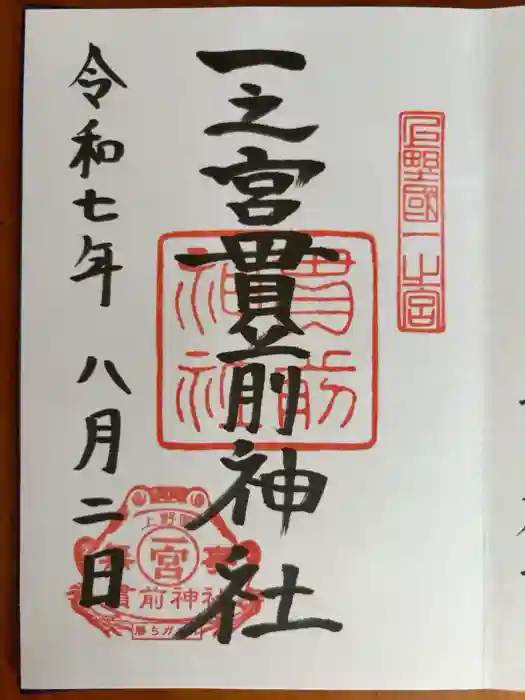 上野國一之宮
一之宮貫前神社
貫前
神社
令和七年 八月二日
上野國
一宮
貫前神社
勝ちガエル